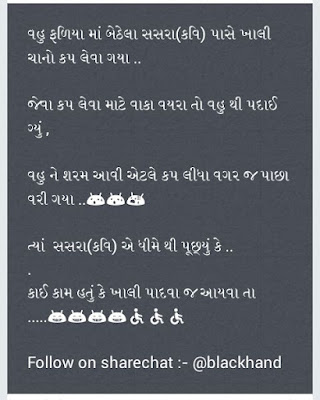 વહુ ફળિયા માં બેઠેલા સસરા(કવિ) પાસે ખાલી
ચાનો કપ લેવા ગયા ..
જેવા કપ લેવા માટે વાકા વયરા તો વહુ થી પદાઈ
ગ્યું ,
વહુ ને શરમ આવી એટલે કપ લીધા વગર જ પાછા
વરી ગયા ..
ત્યાં સસરા(કવિ) એ ધીમે થી પૂછ્યું કે ..
.
કાઈ કામ હતું કે ખાલી પાદવા જ આયવા તા
.....♿♿♿
Follow on sharechat :- @blackhand